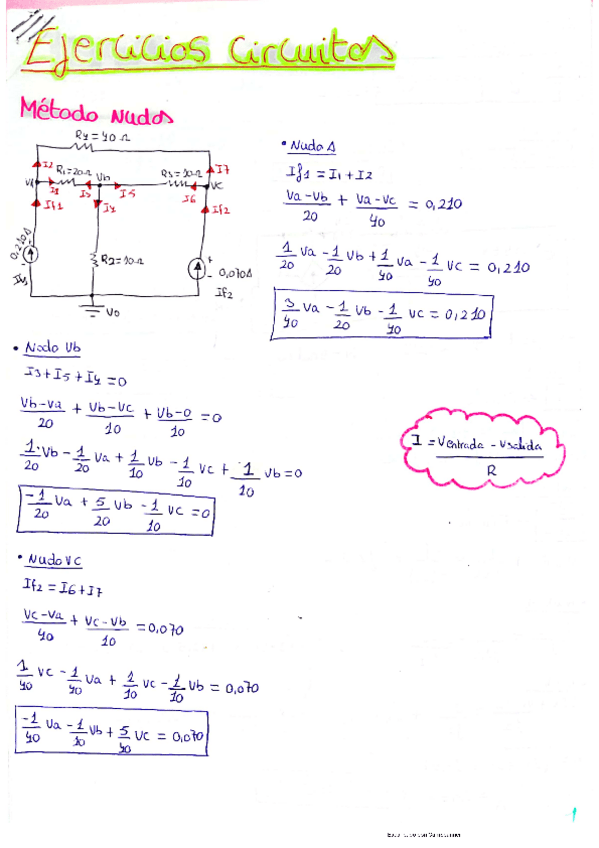 Ejercicios Circuitos
Método Nudos
R4=40Ω
I2
I7
R1=20Ω
Vb
R3=10Ω
Va
I1
I3
I5
I6
Vc
If1
I4
If2
0,210A
R2=10Ω
0,070A
If2
V0
• Nudo A
If1 = I1 + I2
Va-Vb/20 + Va-Vc/40 = 0,210
1/20 Va - 1/20 Vb + 1/40 Va - 1/40 Vc = 0,210
3/40 Va - 1/20 Vb - 1/40 Vc = 0,210
• Nodo Vb
I3+I5+I4=0
Vb-Va/20 + Vb-Vc/10 + Vb-0/10 = 0
1/20·Vb - 1/20 Va + 1/10 Vb - 1/10 Vc + 1/10 Vb = 0
-1/20 Va + 5/20 Vb - 1/10 Vc = 0
I = Ventrada - Vsalida / R
• Nudo VC
If2 = I6 + I7
Vc-Va/40 + Vc-Vb/10 = 0,070
1/40 Vc - 1/40 Va + 1/10 Vc - 1/10 Vb = 0,070
-1/40 Va - 1/10 Vb + 5/40 Vc = 0,070
1